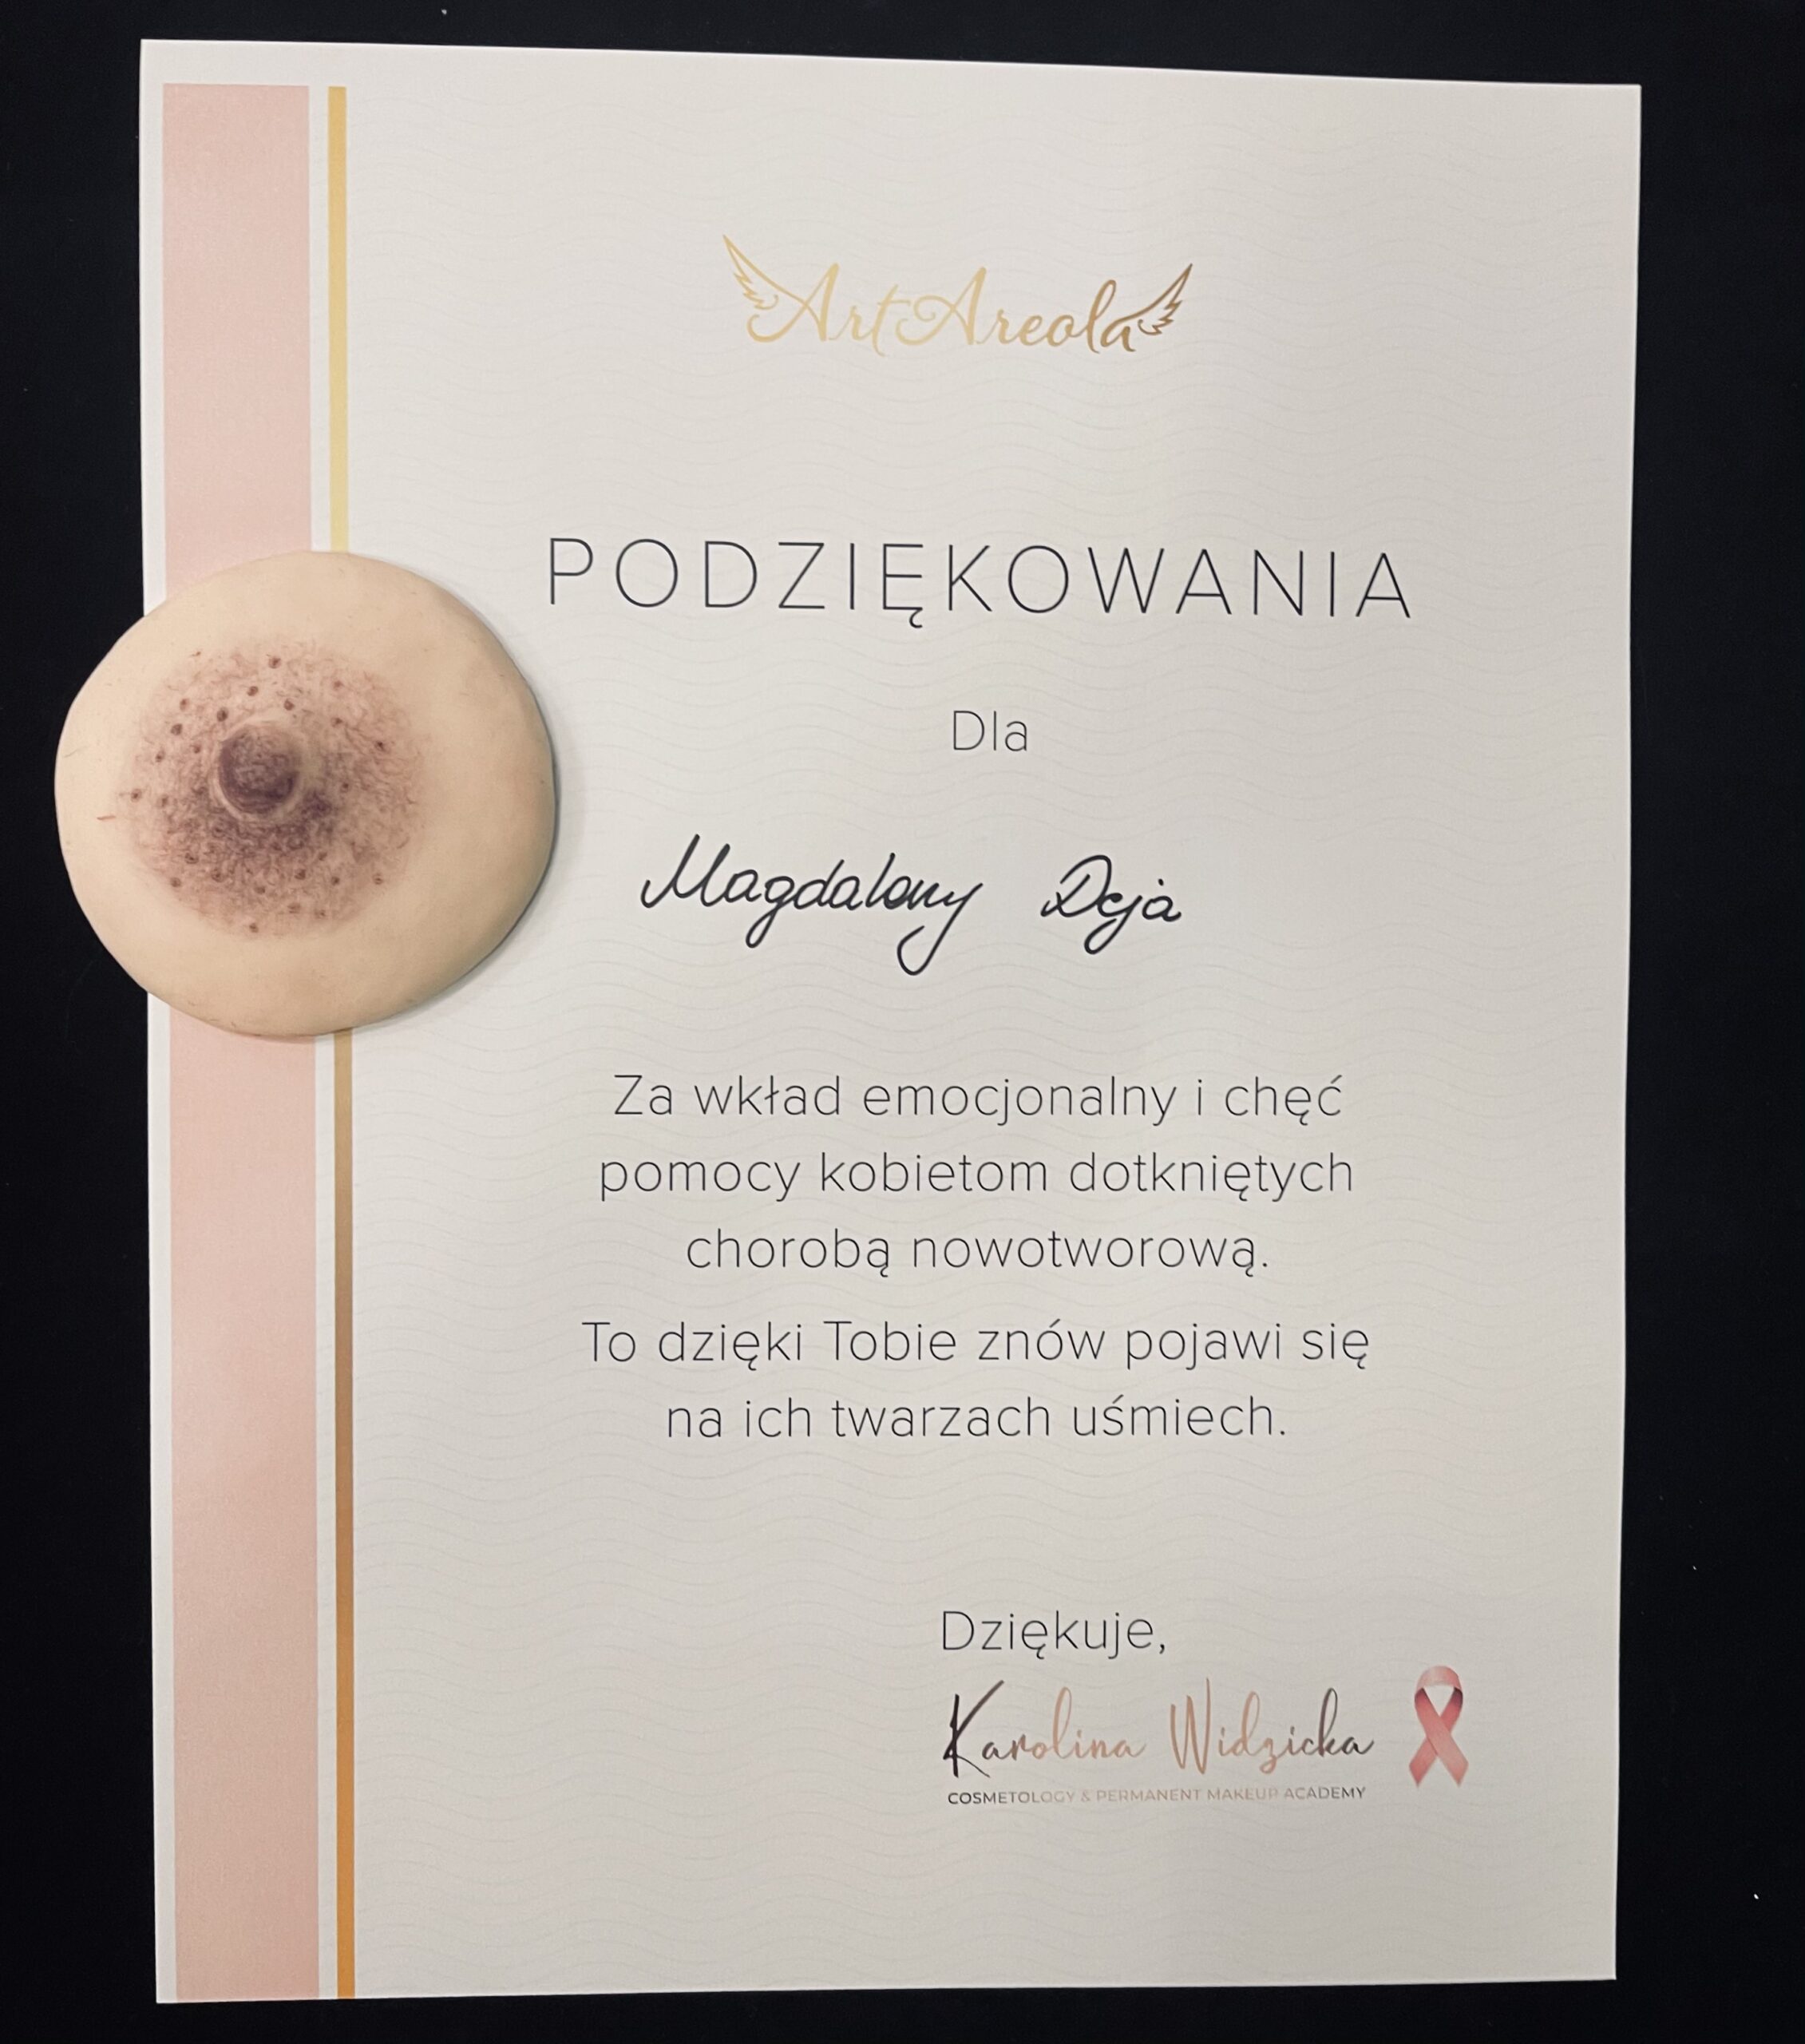 Art Areola
PODZIĘKOWANIA
Dla
Magdaleny Deja
Za wkład emocjonalny i chęć
pomocy kobietom dotkniętych
chorobą nowotworową.
To dzięki Tobie znów pojawi się
na ich twarzach uśmiech.
Dziękuje,
Karolina Widzicka
COSMETOLOGY & PERMANENT MAKEUP ACADEMY